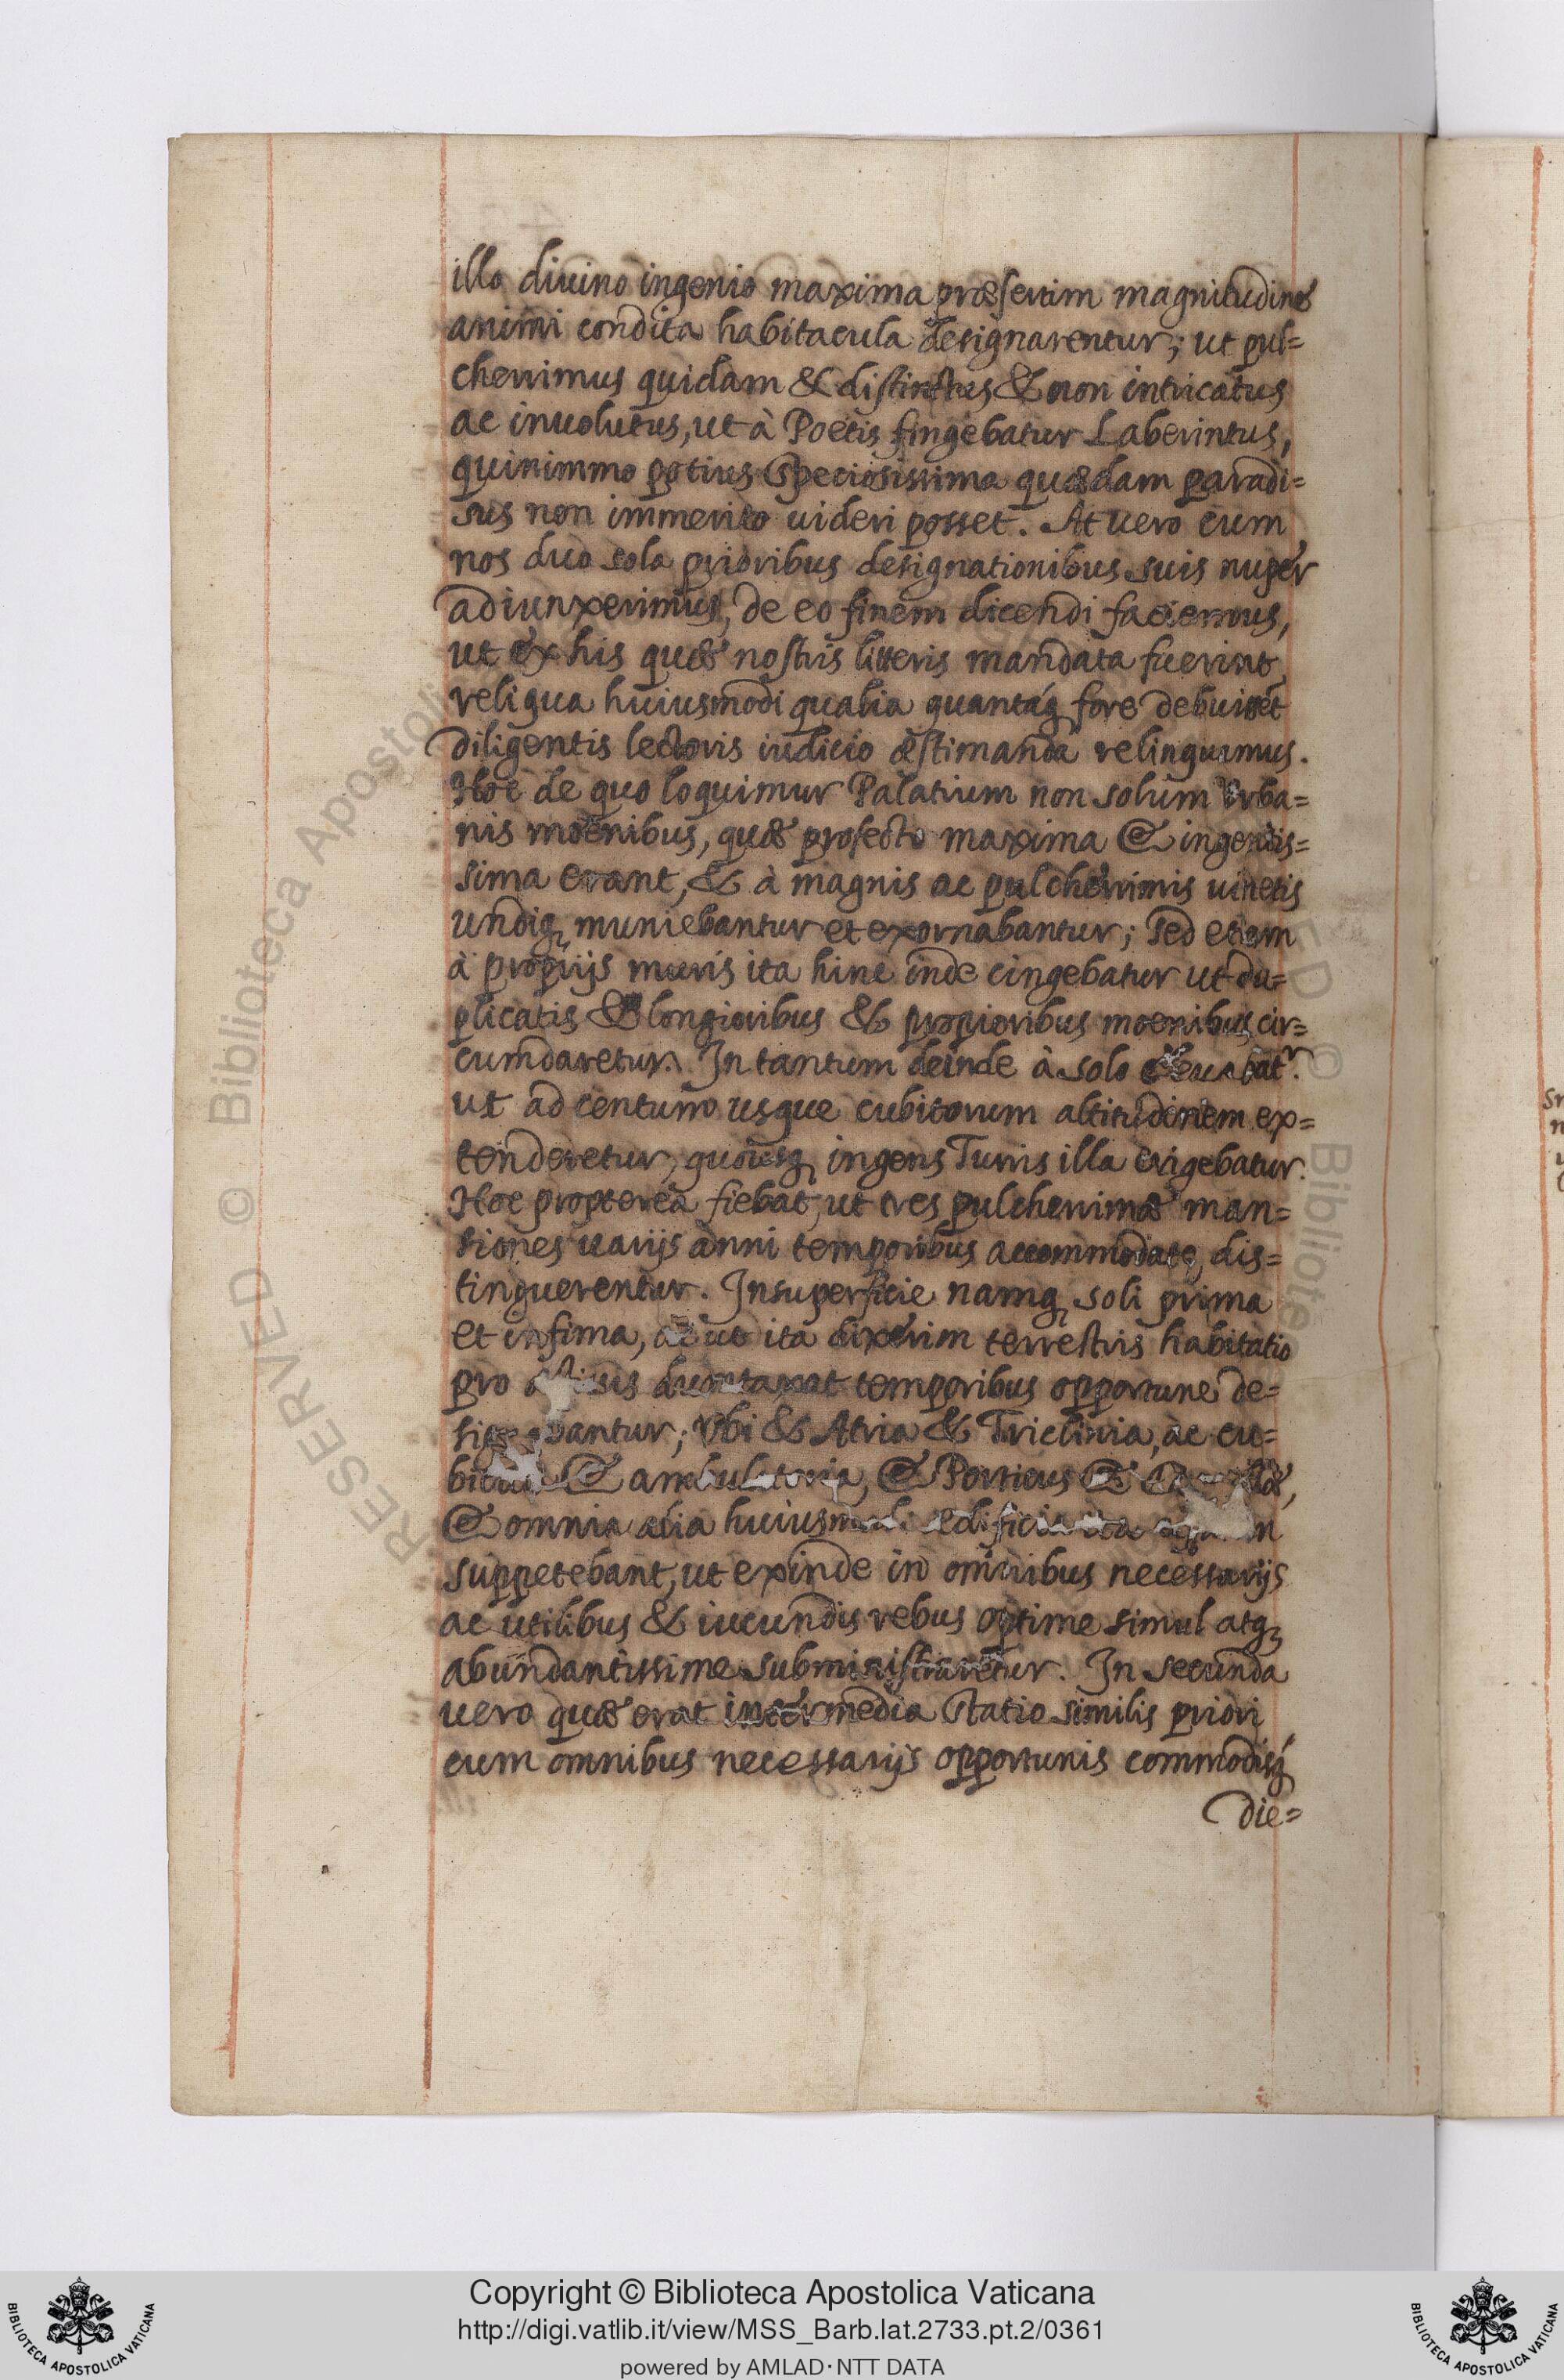 illo diuino ingenio maxima præsertim magnitudine
animi condita habitacula designarentur; ut pul=
cherrimus quidam & distinctus & non intricatus
ac inuolutus, ut à Poetis fingebatur Laberintus,
quinimmo potius speciosissima quædam paradi=
sus non immerito uideri posset. At uero cum
nos duo sola prioribus designationibus suis nuper
adiunxerimus, de eo finem dicendi faciemus,
ut ex his quæ nostris litteris mandata fuerint
reliqua huiusmodi qualia quantáq fore debuisset
diligentis lectoris iudicio æstimanda relinquimus.
Hoc de quo loquimur Palatium non solum Vrba=
nis moenibus, quæ profecto maxima & ingentis=
sima erant, & à magnis ac pulcherrimis uinetis
undiq muniebantur et exornabantur; Sed etiam
à proprijs muris ita hinc inde cingebatur ut du=
plicatis & longioribus & propioribus moenibus cir=
cumdaretur. In tantum deinde à solo eleuabat.
ut ad centum usque cubitorum altitudinem ex=
tenderetur, quousq ingens Turris illa erigebatur.
Hoc propterea fiebat, ut tres pulcherrimæ man=
siones uarijs anni temporibus accommodate dis=
tinguerentur. In superficie namq soli prima
et infima, ac ut ita dixerim terrestris habitatio
pro dumtaxat temporibus opportune de=
; Vbi & Atria & Triclinia, ac cu=
& ambulatoria, & Porticus &
& omnia alia huiusmodi ædificia ita
suppetebant, ut exinde in omnibus necessarijs
ac utilibus & iucundis rebus optime simul atq
abundantissime subministraretur. In secunda
uero quæ erat intermedia statio similis priori
cum omnibus necessarijs opportunis commodisq́
die=
Sn
RESERVED © Biblioteca Apostolica
© Bibliote
BIBLIOTECA APOSTOLICA VATICANA
Copyright © Biblioteca Apostolica Vaticana
http://digi.vatlib.it/view/MSS_Barb.lat.2733.pt.2/0361
powered by AMLAD·NTT DATA
BIBLIOTECA APOSTOLICA VATICANA